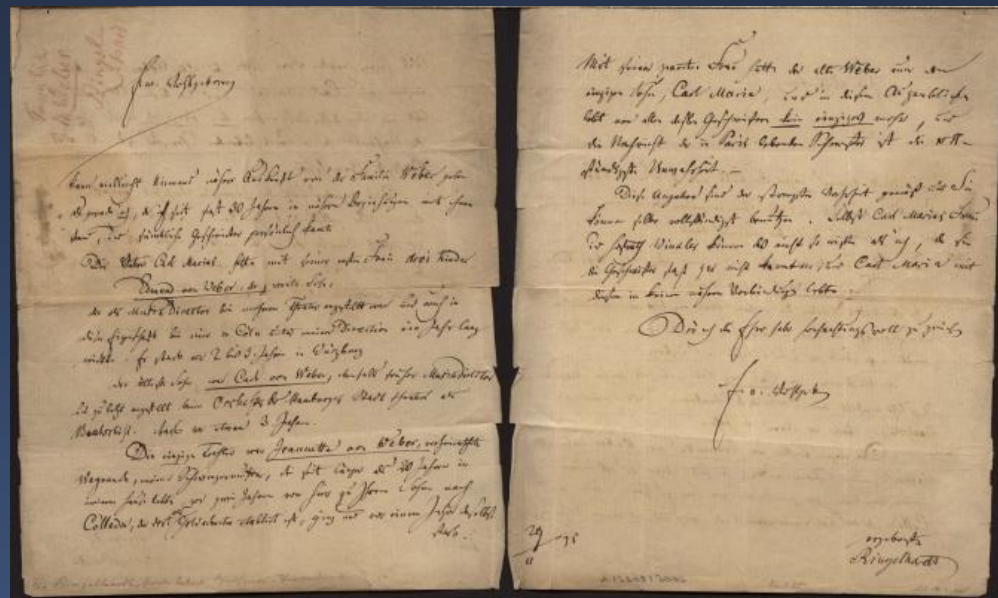 Ew. Wohlgeboren
kann vielleicht Niemand nähere Auskunft von der Familie Weber geben
als gerade ich, da ich seit fast 30 Jahren in näherer Beziehung mit ihnen
und sämtliche Geschwister persönlich kannte
Der Vater Carl Marias hatte mit seiner ersten Frau drei Kinder
Edmund von Weber, der zweite Sohn,
der als Musik Director bei mehreren Theater angestellt war und auch in
dieser Eigenschaft bei mir in Cöln unter meiner Direction ein Jahr lang
wirkte. Er starb vor 2 bis 3 Jahren in Würzburg
der älteste Sohn war Carl von Weber, ebenfalls früher Musikdirector
bis zuletzt angestellt beim Orchester des Hamburger Stadt Theaters als
starb vor etwa 3 Jahren.
Die einzige Tochter war Jeannette von Weber, verheirathete
Weyrauch, meine Schwiegermutter, die seit länger als 20 Jahren in
meinem Hause lebte, vor zwei Jahren von hier zu ihrem Sohn nach
Cölleda, der dort etablirt ist, ging und vor einem Jahr daselbst
starb.
Mit seiner zweiten Frau hatte der alte Weber nur den
einzigen Sohn, Carl Maria, und in diesem Augenblicke
lebt von allen diesen Geschwistern kein einziges mehr, und
die Nachricht der in Paris lebenden Schwester ist die voll-
ständigste Unwahrheit. –
Diese Angaben sind der strengsten Wahrheit gemäß und Sie
können selbe vollständigst benutzen. Selbst Carl Marias Frau
und Hofrath Winkler können das nicht so wissen als ich, da sie
die Geschwister fast gar nicht kannten und Carl Maria mit
diesen in keiner nähern Verbindung lebte.
Der ich die Ehre habe hochachtungsvoll zu zeichnen
Ew. Wohlgeb
ergebenster
Ringelhardt